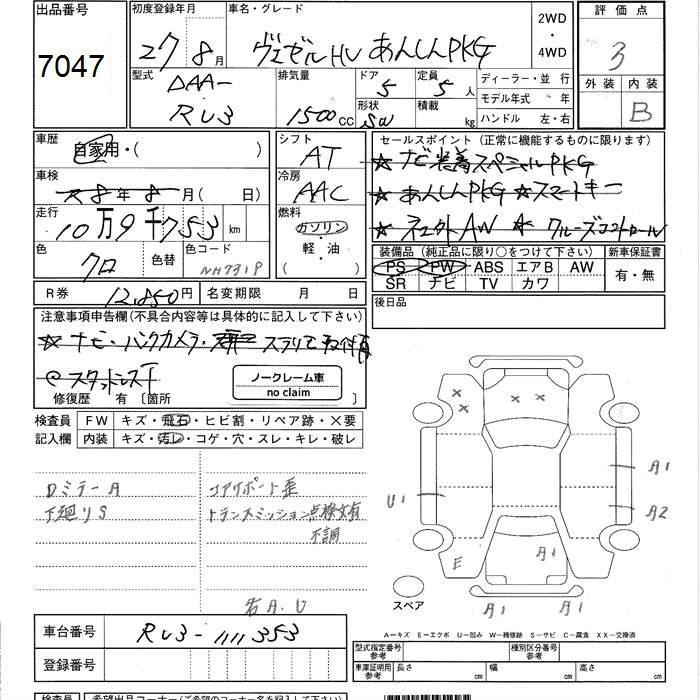 出品番号
7047
初度登録年月
27 8月
車名・グレード
ヴェゼルHV あんしんPKG
2WD
・
4WD
評価点
3
外装 内装
B
型式
DAA-
RU3
排気量
1500cc
ドア
5
定員
5人
形状
SW
積載
kg
ディーラー・並行
モデル年式 年
ハンドル 左・右
車歴
自家用・( )
車検
8年8月( 日)
走行
10万9千753km
色
クロ
色替
色コード
NH731P
R券
12,850円
名変期限 月 日
シフト
AT
冷房
AAC
燃料
ガソリン
・
軽・油
( )
セールスポイント(正常に機能するものに限ります)
☆ナビ装着スペシャルPKG
☆あんしんPKG ☆スマートキー
☆ AW ☆ クルーズコントロール
装備品(純正品に限り○をつけて下さい)
PS PW ABS エアB AW
SR ナビ TV カワ
新車保証書
有・無
後日品
注意事項申告欄(不具合内容等は具体的に記入して下さい)
☆ナビ・バックカメラ・
スタッドレス
修復歴 有〔箇所 〕
ノークレーム車
no claim
検査員
記入欄
FW キズ・飛石・ヒビ割・リペア跡・×要
内装 キズ・汚レ・コゲ・穴・スレ・キレ・破レ
DミラーA
下廻りS
コアサポート歪
トランスミッション点検文有
不調
若A.U
× × × ×
U1
A1
A2
E
A1
A1
A1
スペア
A―キズ E―エクボ U―凹み W―補修跡 S―サビ C―腐食 XX―交換済
車台番号
RU3-1111353
登録番号
型式指定番号
参考
種別区分番号
参考
車庫証明用
参考
長さ cm
幅 cm
高さ cm
検査員
希望出品コーナー(ご希望のコーナー名を記入して下さい)